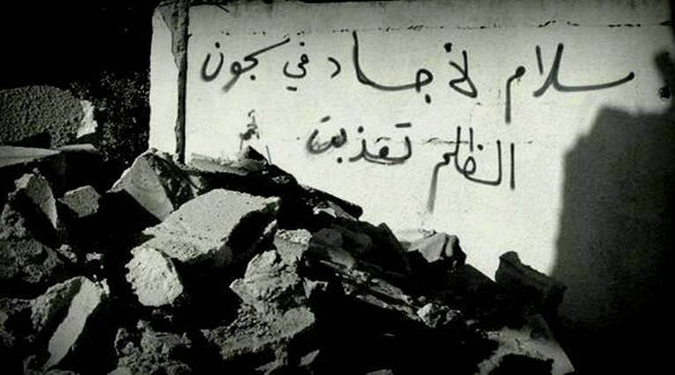 سلام لأجساد في سجون
الظلم تعذبت